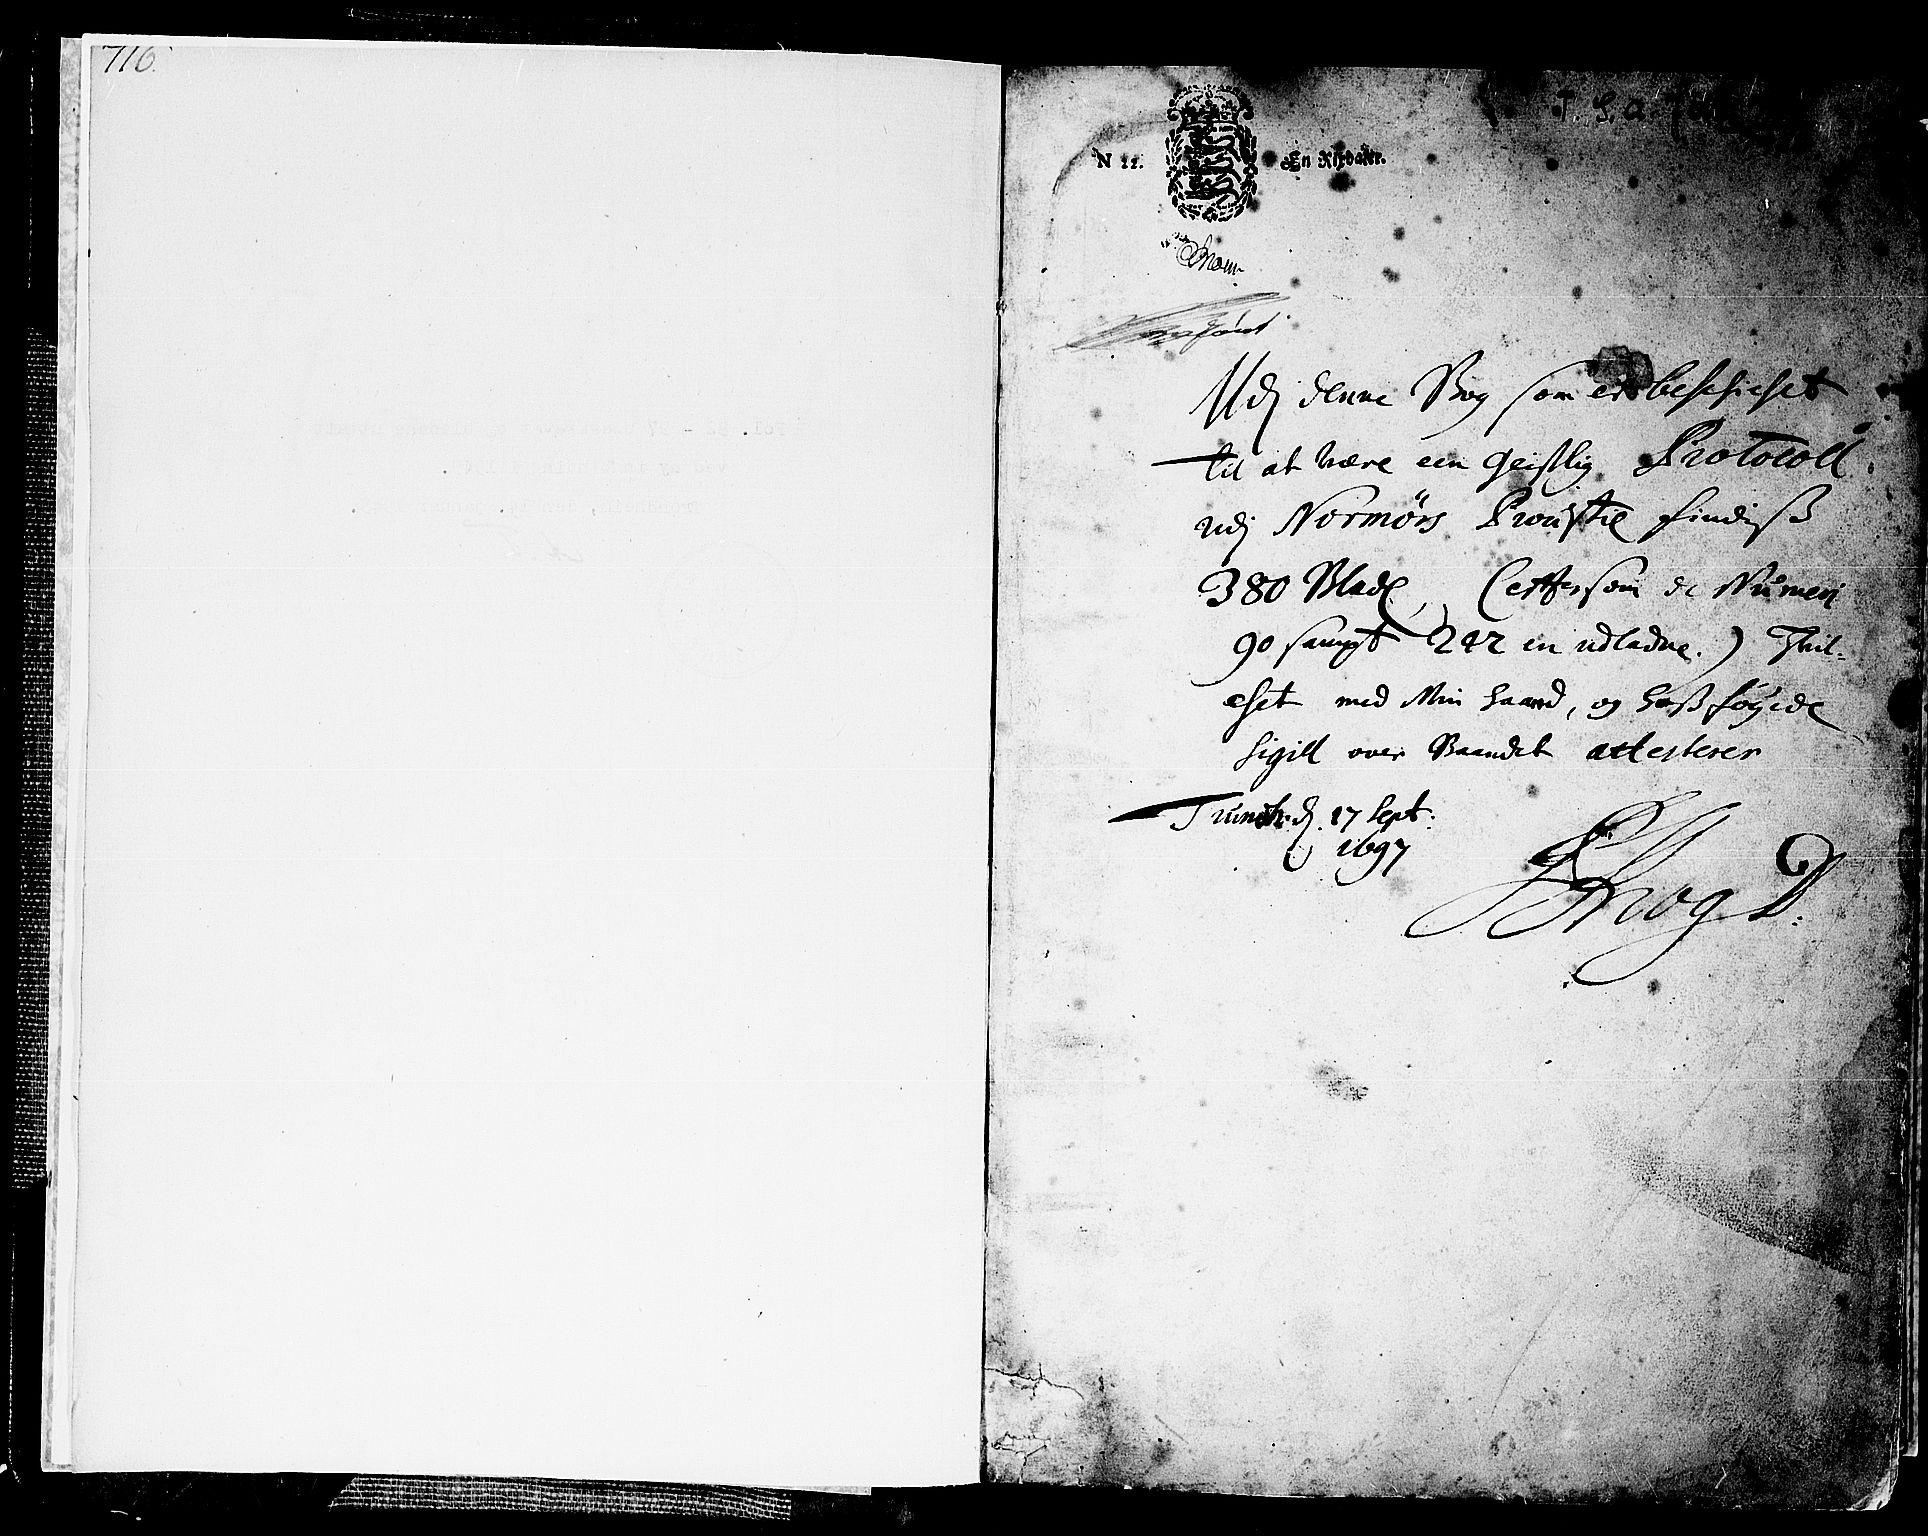 716.
N 22. En Rixdaler.
Udj denne Bog som er beskicket
til at være een geistlig Protocoll
udj Normørs Proustie findiss
380 Blade, (eftersom de Numeri
90 sampt 242 ere udladne.) Hvil-
cket med Min haand, og hossføyede
Sigill over Baandet attesterer
Trundh. d. 17 Sept.
1697
Krog D.